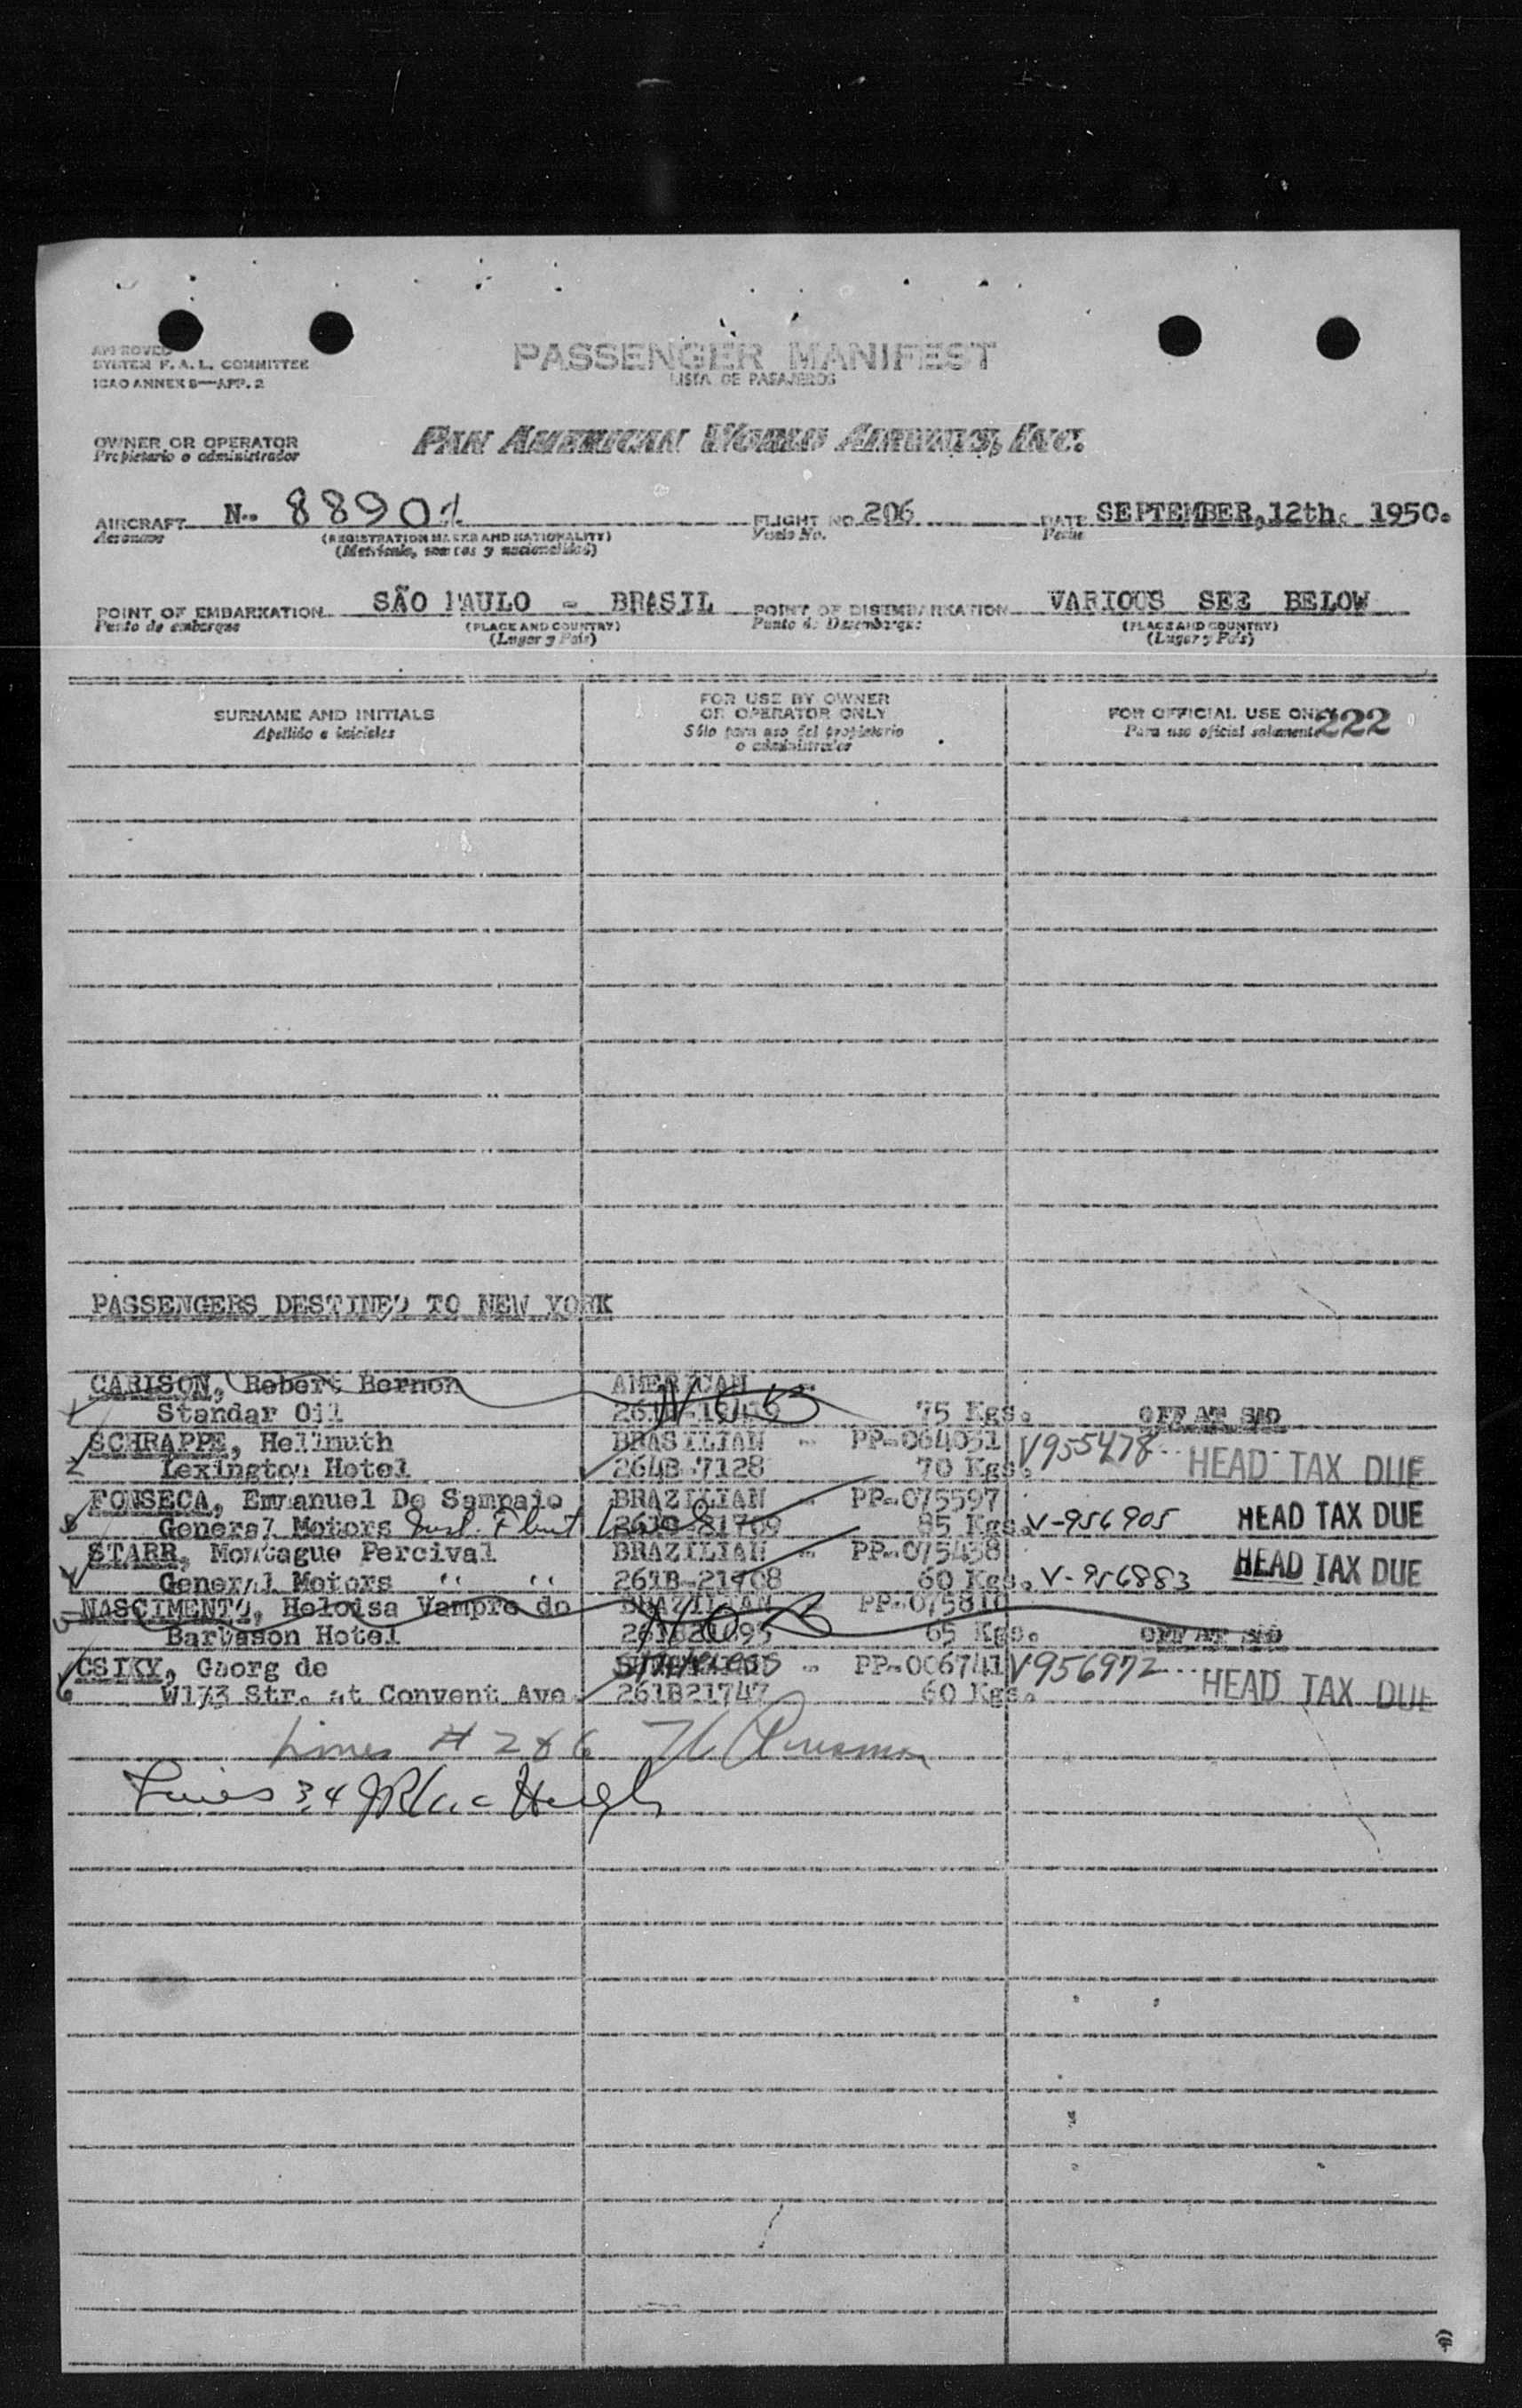 APPROVED
SYSTEM F. A. L. COMMITTEE
ICAO ANNEX 9—APP. 2
PASSENGER MANIFEST
LISTA DE PASAJEROS
OWNER OR OPERATOR
Propietario o administrador
PAN AMERICAN WORLD AIRWAYS, INC.
AIRCRAFT N- 88901 FLIGHT NO. 206 DATE SEPTEMBER, 12th. 1950.
Aeronave (REGISTRATION MARKS AND NATIONALITY) Vuelo No. Fecha
(Matrícula, marcas y nacionalidad)
POINT OF EMBARKATION SÃO PAULO - BRASIL POINT OF DISEMBARKATION VARIOUS SEE BELOW
Punto de embarque (PLACE AND COUNTRY) Punto de Desembarque (PLACE AND COUNTRY)
(Lugar y País) (Lugar y País)
SURNAME AND INITIALS FOR USE BY OWNER OR OPERATOR ONLY FOR OFFICIAL USE ONLY 222
Apellido e iniciales Sólo para uso del propietario o administrador Para uso oficial solamente
PASSENGERS DESTINED TO NEW YORK
CARLSON, Robert Bernon AMERICAN
1 Standar Oil NOB 75 Kgs. OFF AT SMD
SCHRAPPE, Hellmuth BRASILIAN - PP-064031 V955478
2 Lexington Hotel 264B-7128 70 Kgs. HEAD TAX DUE
FONSECA, Emmanuel De Sampaio BRAZILIAN - PP-075597
3 General Motors Inst. Flint 85 Kgs. V-956905 HEAD TAX DUE
STARR, Montague Percival BRAZILIAN - PP-075438
4 General Motors " " 261B-21708 60 Kgs. V-956883 HEAD TAX DUE
5 NASCIMENTO, Heloisa Vampre do BRAZILIAN - PP-075810
Barbason Hotel NOB 65 Kgs. OFF AT SMD
CSIKY, Georg de - PP-006741 V956972
6 W173 Str. at Convent Ave. 261B21747 60 Kgs. HEAD TAX DUE
Lines # 2 & 6
Lines 3,4